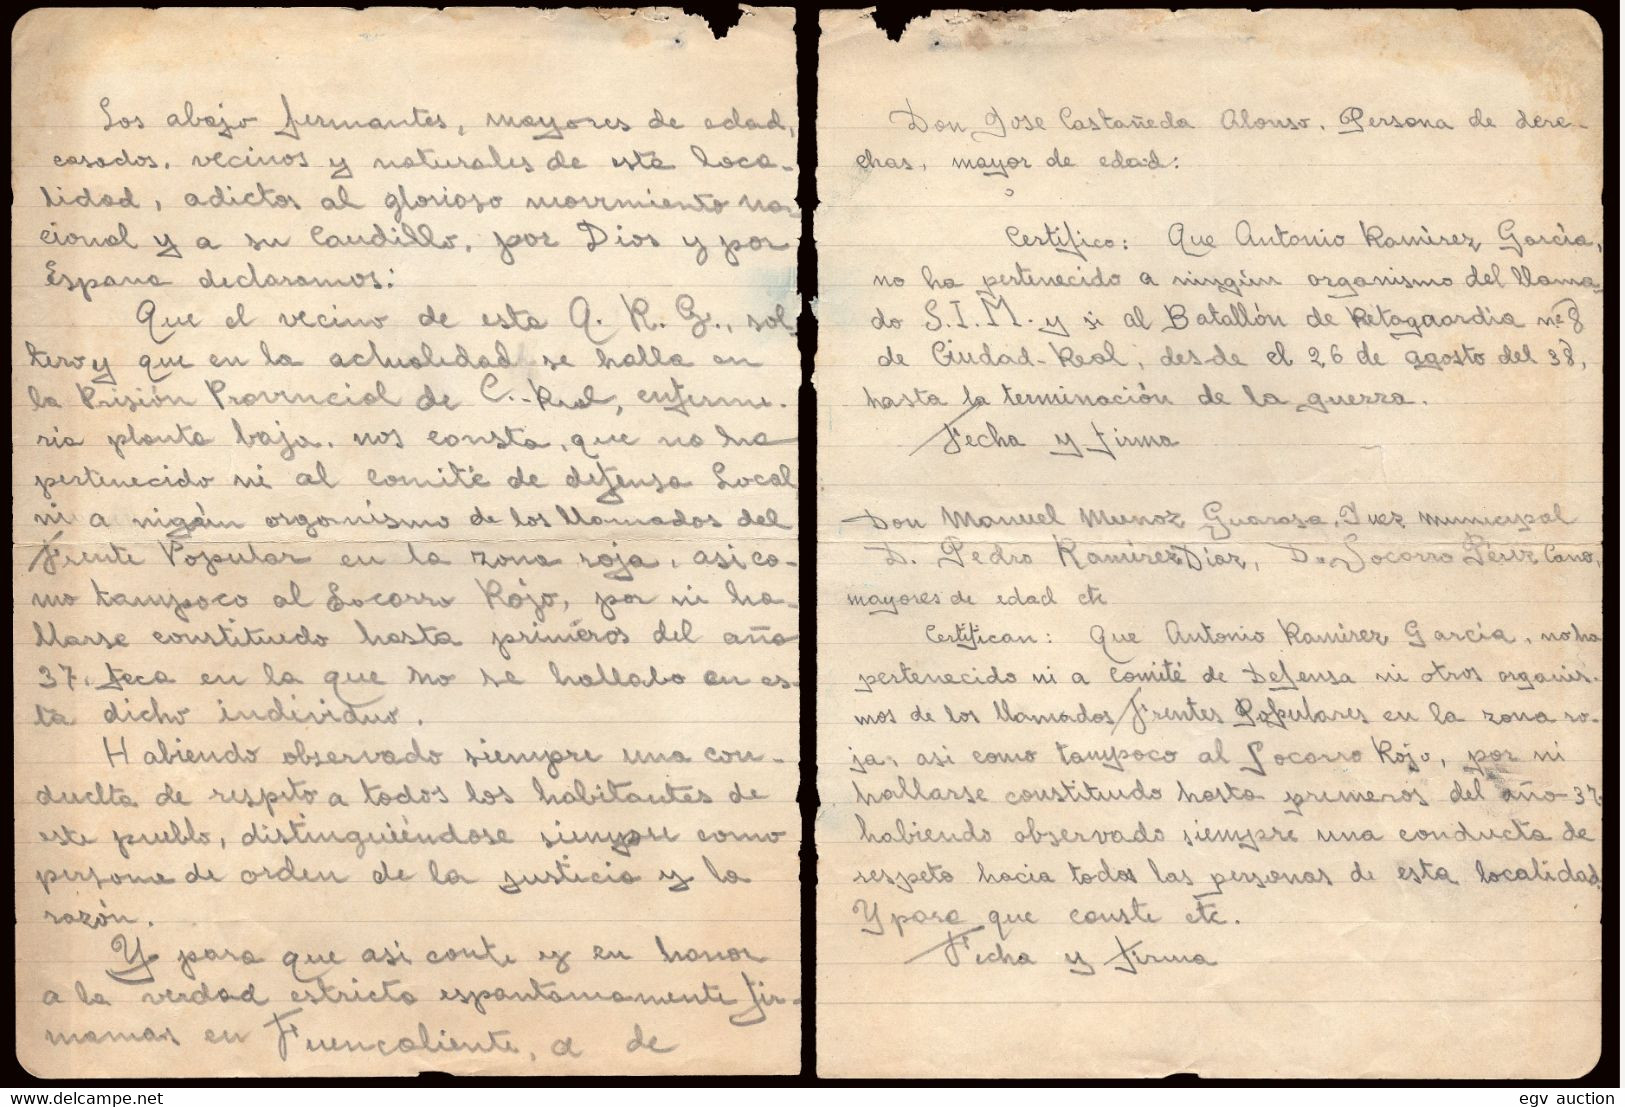 Los abajo fermantes, mayores de edad,
casados, vecinos y naturales de esta loca-
lidad, adictos al glorioso movimiento na-
cional y a su Caudillo, por Dios y por
Espana declaramos:
Que el vecino de esta A. R. G., sol-
tero y que en la actualidad se halla en
la Prisión Provincial de C.-Real, enferme-
ria planta baja, nos consta, que no ha
pertenecido ni al comité de defensa Local
ni a nigún organismo de los llamados del
Frente Popular en la zona roja, asi co-
mo tampoco al Socorro Rojo, por ni ha-
llarse constituido hasta primeros del año
37, feca en la que no se hallaba en es-
ta dicho individuo.
Habiendo observado siempre una con-
duclta de respeto a todos los habitantes de
este pueblo, distinguiéndose siempre como
persona de orden de la justicia y la
razón.
Y para que asi conte y en honor
a la verdad estricta espontaneamente fir-
mamos en Fuencaliente, a de
Don Jose Castañeda Alonso. Persona de dere-
chas, mayor de edad:
Certifico: Que Antonio Ramirez Garcia,
no ha pertenecido a ningún organismo del llama-
do S.I.M. y si al Batallón de Retaguardia nº 8
de Ciudad-Real, desde el 26 de agosto del 38,
hasta la terminación de la guerra.
Fecha y firma
Don Manuel Munoz Guarasa, Juez municipal
D. Pedro Ramirez Diaz, D. Socorro Pérez Cano,
mayores de edad etc
Certifican: Que Antonio Ramirez Garcia, no ha
pertenecido ni a Comité de Defensa ni otros organis-
mos de los llamados Frentes Populares en la zona ro-
ja, asi como tampoco al Socorro Rojo, por ni
hallarse constituido hasta primeros del año 37,
habiendo observado siempre una conducta de
respeto hacia todas las personas de esta localidad.
Y para que conste etc.
Fecha y firma
www.delcampe.net
egv auction